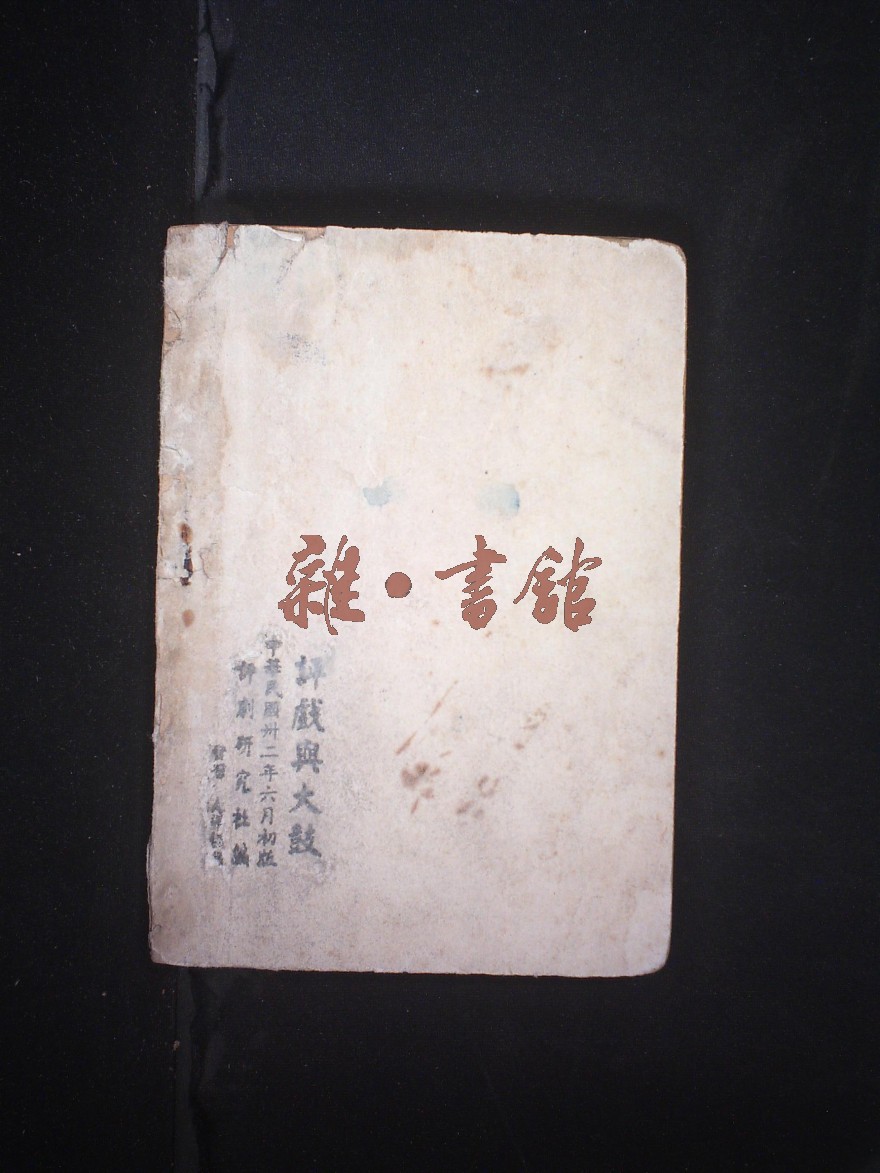 雜·書館
評戲與大鼓
中華民國卅二年六月初版
評劇研究社編